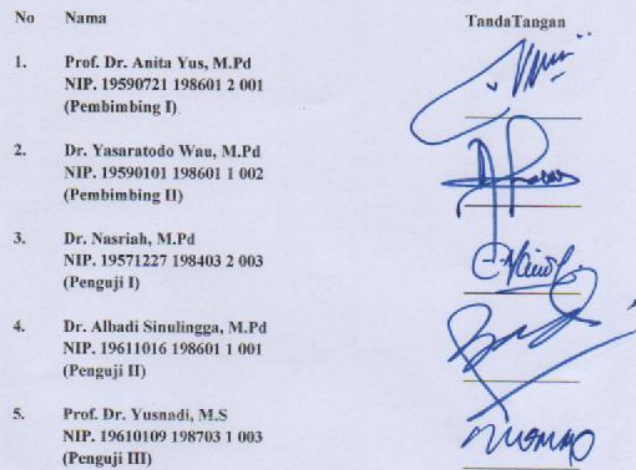 No Nama TandaTangan
1. Prof. Dr. Anita Yus, M.Pd
NIP. 19590721 198601 2 001
(Pembimbing I)
2. Dr. Yasaratodo Wau, M.Pd
NIP. 19590101 198601 1 002
(Pembimbing II)
3. Dr. Nasriah, M.Pd
NIP. 19571227 198403 2 003
(Penguji I)
4. Dr. Albadi Sinulingga, M.Pd
NIP. 19611016 198601 1 001
(Penguji II)
5. Prof. Dr. Yusnadi, M.S
NIP. 19610109 198703 1 003
(Penguji III)